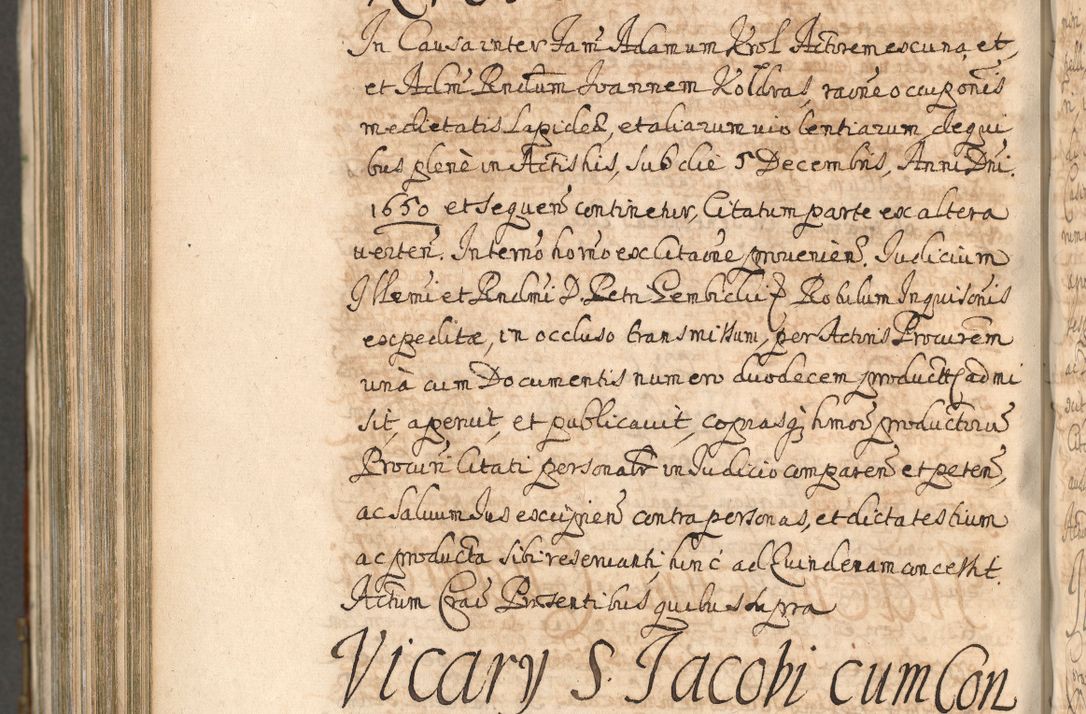 In Causa inter Fam̃ Adamum Krol Actorem ex una, et,
et Adm̃ Rndum Ioannem Koldras, raõne occupõnis
medietatis Lapideæ, et aliarum violentiarum, de qui
bus plenè in Actis his, sub die 5 Decembris, Anni Dni.
1650 et sequeñ continetur, Citatum parte ex altera
verteñ. In termõ horno ex citaõne proveniẽn. Iudicium
Illmi et Rndmi D. Petri Gembicki Rotulum Inquisõnis
expeditæ, in occluso transmissum, per Actoris Procurem
unà cum Documentis numero duodecem producttt admi
sit, aperuit, et publicavit, copiasq; hmõi productorũ
Procuri Citati personalr in Iudicio compareñ et peteñ,
ac salvum Ius excipieñ contra personas, et dicta testium
ac producta sibi reservanti, hinc ad Quindenam concessit.
Actum Crac Præsentibus quibus supra
Vicary S. Iacobi cum Con